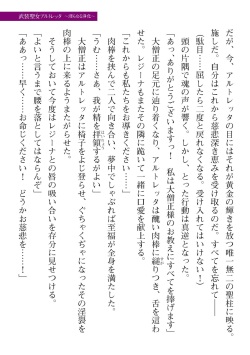 武装聖女アルトレッタ
だが、今、アルトレッタの目にはそれが黄金の輝きを放つ唯一無二の聖柱に映る。
施しだ。自分はこれから慈悲深き恵みを受け取るのだ。すべてを忘れて――
（駄目……屈したら二度と戻れなくなる……受け入れてはいけない！）
頭の片隅で魂の声が響く。しかし、とった行動は真逆だった。
「あっ、ありがとうございますっ！　私は大僧正様のお教えにすべてを捧げます」
大僧正の足元に辿り着くなり、アルトレッタは醜い肉棒に縋りつき、舌を這わ
せた。レジーナもまたその隣に跪いて一緒に口愛を献上する。
「これからも私たちをお導きください……」
肉棒を挟んで二人で向き合い、夢中でしゃぶれば至福が全身を満たした。
「うむ……さあ、我が精を拝領するがよい」
大僧正はアルトレッタに椅子をよじ登らせ、ぐちゃぐちゃになったその淫唇を
肉棒の上に来るようまたがらせた。
そうしておいて今度はレジーナとの唇の吸い合いを存分に見せつける。
「よいと言うまで腰を落としてはならんぞ」
「ああっ……！　早く……お命じください！　どうかお慈悲を……！」